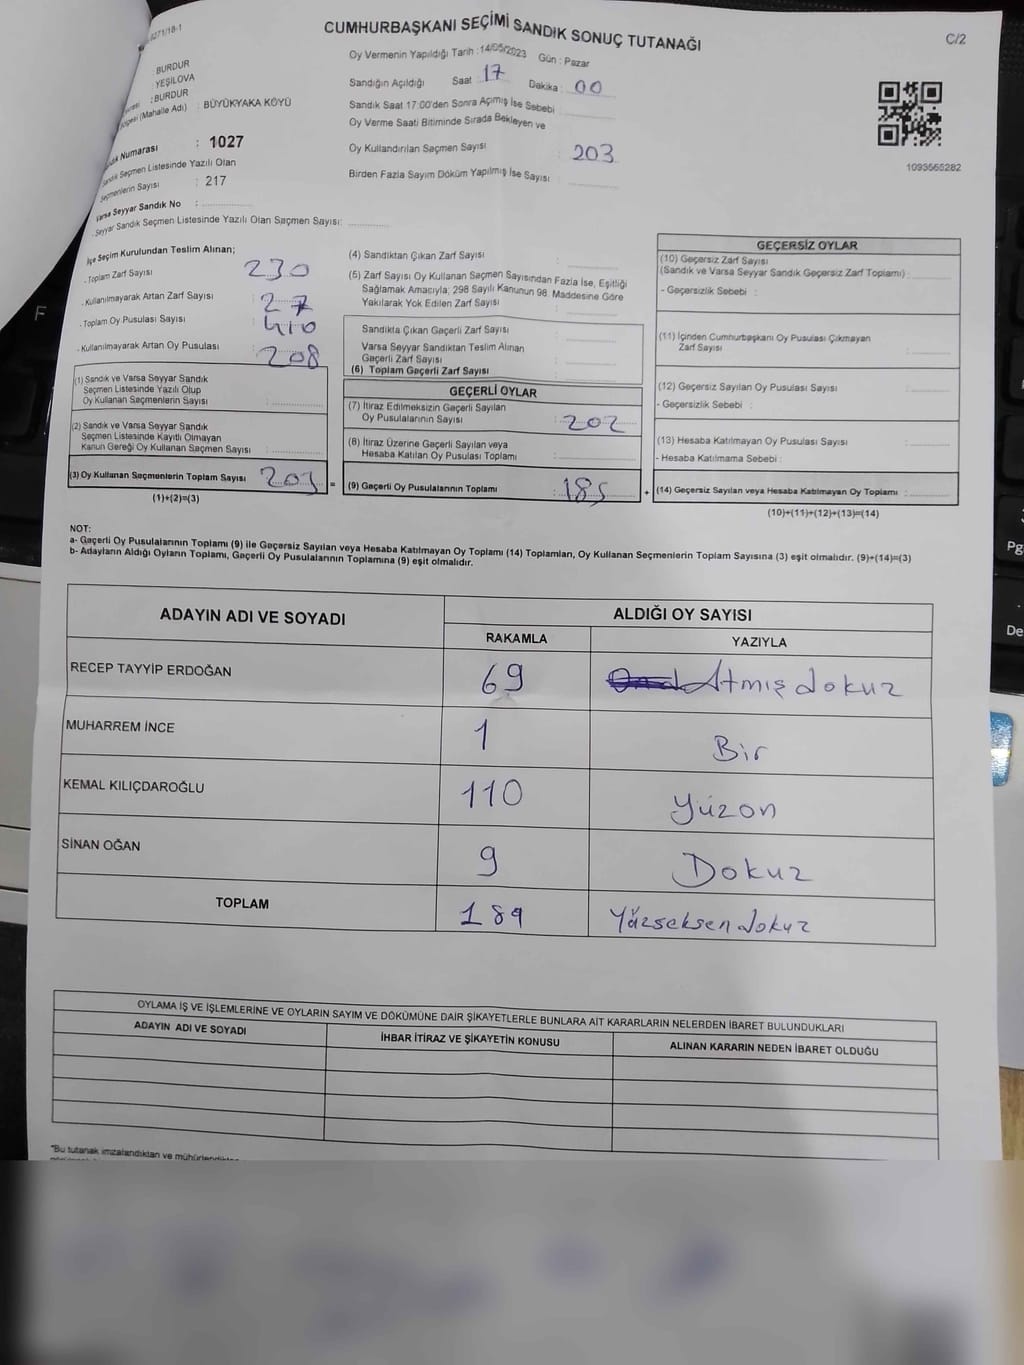 CUMHURBAŞKANI SEÇİMİ SANDIK SONUÇ TUTANAĞI
C/2
BURDUR
YEŞİLOVA
BURDUR
(Mahalle Adı) : BÜYÜKYAKA KÖYÜ
Numarası : 1027
Sandık Seçmen Listesinde Yazılı Olan
Seçmenlerin Sayısı : 217
Varsa Seyyar Sandık No :
Seyyar Sandık Seçmen Listesinde Yazılı Olan Seçmen Sayısı:
Oy Vermenin Yapıldığı Tarih : 14/05/2023 Gün : Pazar
Sandığın Açıldığı Saat 17 Dakika : 00
Sandık Saat 17:00'den Sonra Açımış İse Sebebi :
Oy Verme Saati Bitiminde Sırada Bekleyen ve
Oy Kullandırılan Seçmen Sayısı : 203
Birden Fazla Sayım Döküm Yapılmış İse Sayısı :
1093565282
İlçe Seçim Kurulundan Teslim Alınan;
- Toplam Zarf Sayısı : 230
- Kullanılmayarak Artan Zarf Sayısı : 27
- Toplam Oy Pusulası Sayısı : 410
- Kullanılmayarak Artan Oy Pusulası : 208
(1) Sandık ve Varsa Seyyar Sandık
Seçmen Listesinde Yazılı Olup
Oy Kullanan Seçmenlerin Sayısı :
(2) Sandık ve Varsa Seyyar Sandık
Seçmen Listesinde Kayıtlı Olmayan
Kanun Gereği Oy Kullanan Seçmen Sayısı :
(3) Oy Kullanan Seçmenlerin Toplam Sayısı 203 =
(1)+(2)=(3)
(4) Sandıktan Çıkan Zarf Sayısı :
(5) Zarf Sayısı Oy Kullanan Seçmen Sayısından Fazla İse, Eşitliği
Sağlamak Amacıyla; 298 Sayılı Kanunun 98. Maddesine Göre
Yakılarak Yok Edilen Zarf Sayısı :
Sandıkta Çıkan Geçerli Zarf Sayısı :
Varsa Seyyar Sandıktan Teslim Alınan
Geçerli Zarf Sayısı :
(6) Toplam Geçerli Zarf Sayısı :
GEÇERLİ OYLAR
(7) İtiraz Edilmeksizin Geçerli Sayılan
Oy Pusulalarının Sayısı : 202
(8) İtiraz Üzerine Geçerli Sayılan veya
Hesaba Katılan Oy Pusulası Toplamı :
(9) Geçerli Oy Pusulalarının Toplamı : 185 +
GEÇERSİZ OYLAR
(10) Geçersiz Zarf Sayısı
(Sandık ve Varsa Seyyar Sandık Geçersiz Zarf Toplamı) :
- Geçersizlik Sebebi :
(11) İçinden Cumhurbaşkanı Oy Pusulası Çıkmayan
Zarf Sayısı :
(12) Geçersiz Sayılan Oy Pusulası Sayısı :
- Geçersizlik Sebebi :
(13) Hesaba Katılmayan Oy Pusulası Sayısı :
- Hesaba Katılmama Sebebi :
(14) Geçersiz Sayılan veya Hesaba Katılmayan Oy Toplamı :
(10)+(11)+(12)+(13)=(14)
NOT:
a- Geçerli Oy Pusulalarının Toplamı (9) ile Geçersiz Sayılan veya Hesaba Katılmayan Oy Toplamı (14) Toplamları, Oy Kullanan Seçmenlerin Toplam Sayısına (3) eşit olmalıdır. (9)+(14)=(3)
b- Adayların Aldığı Oyların Toplamı, Geçerli Oy Pusulalarının Toplamına (9) eşit olmalıdır.
ADAYIN ADI VE SOYADI ALDIĞI OY SAYISI
RAKAMLA YAZIYLA
RECEP TAYYİP ERDOĞAN 69 Atmış dokuz
MUHARREM İNCE 1 Bir
KEMAL KILIÇDAROĞLU 110 Yüzon
SİNAN OĞAN 9 Dokuz
TOPLAM 189 Yüzseksen dokuz
OYLAMA İŞ VE İŞLEMLERİNE VE OYLARIN SAYIM VE DÖKÜMÜNE DAİR ŞİKAYETLERLE BUNLARA AİT KARARLARIN NELERDEN İBARET BULUNDUKLARI
ADAYIN ADI VE SOYADI İHBAR İTİRAZ VE ŞİKAYETİN KONUSU ALINAN KARARIN NEDEN İBARET OLDUĞU
"Bu tutanak imzalandıktan ve mühürlendikten